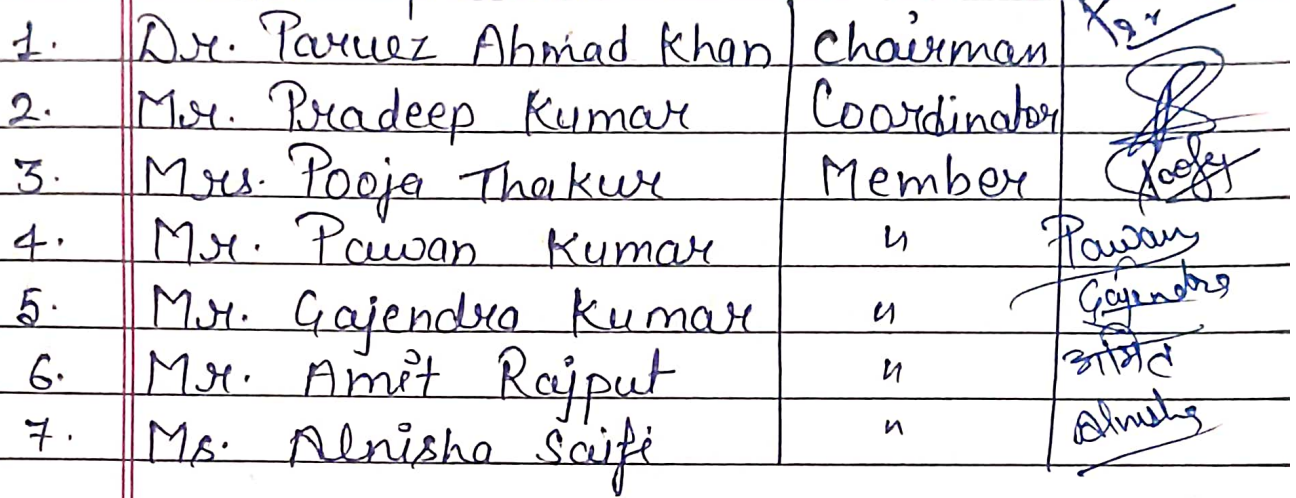 1. Dr. Parvez Ahmad Khan Chairman
2. Mr. Pradeep Kumar Coordinator
3. Mrs. Pooja Thakur Member Pooja
4. Mr. Pawan Kumar " Pawan
5. Mr. Gajendra Kumar " Gajendra
6. Mr. Amit Rajput " अमित
7. Ms. Alnisha Saifi " Alnisha